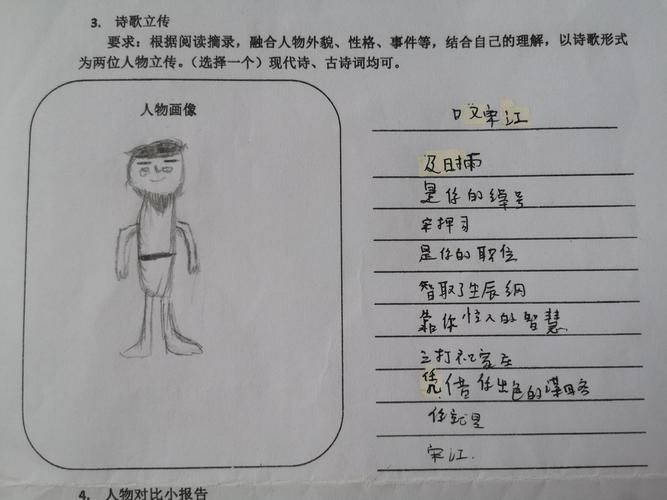 3. 诗歌立传
要求：根据阅读摘录，融合人物外貌、性格、事件等，结合自己的理解，以诗歌形式
为两位人物立传。（选择一个）现代诗、古诗词均可。
人物画像
叹宋江
及时雨
是你的绰号
宋押司
是你的职位
智取了生辰纲
靠你惊人的智慧
三打祝家庄
凭借你出色的谋略
你就是
宋江.
4. 人物对比小报告